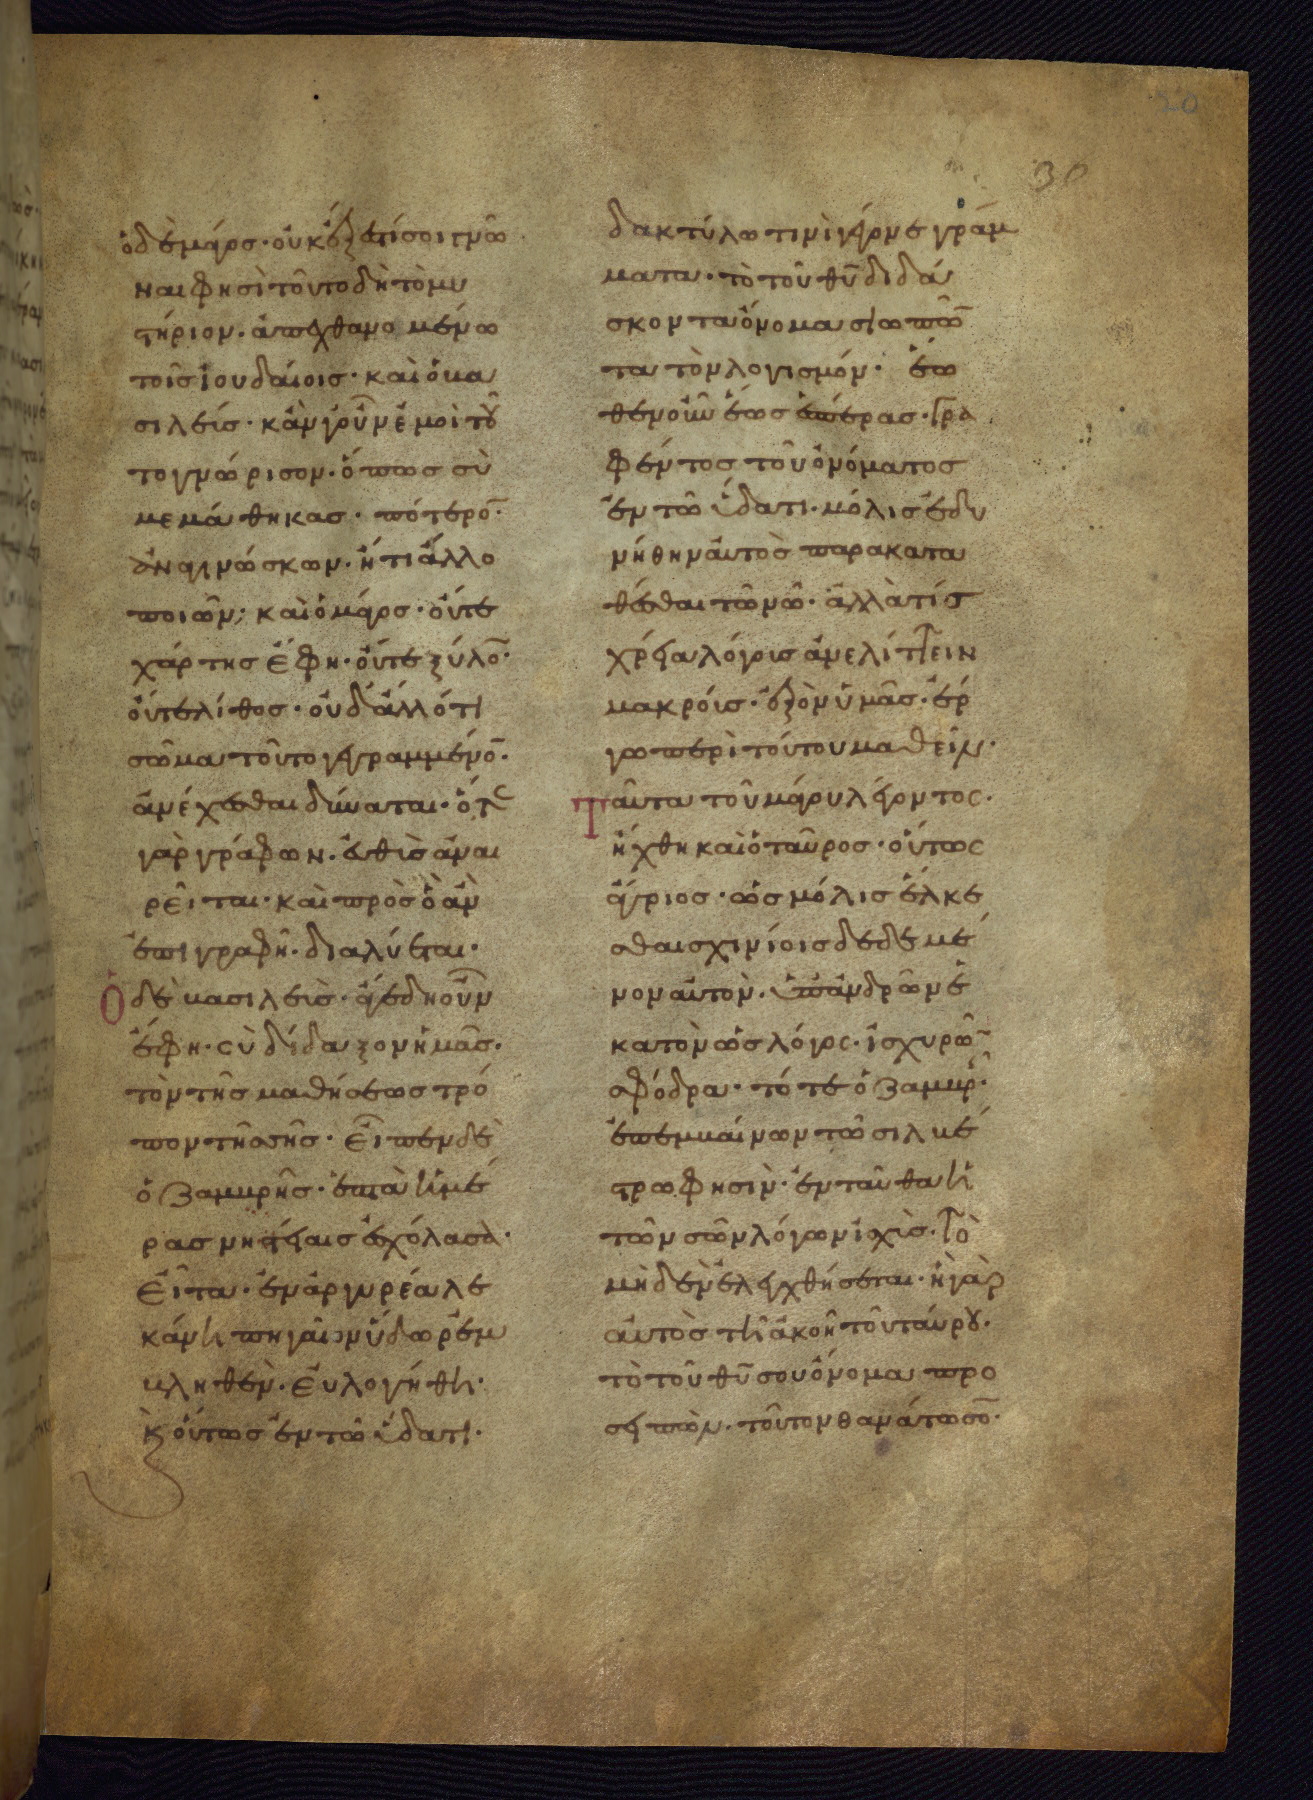 20
30
ὁ δὲ μάγος· οὐκ ἔξεστί σοι γνῶ
ναι φησὶ τοῦτο δὴ τὸ μυ
στήριον. ἀπεχθανομένω
τοῖς ἰουδαίοις· καὶ ὁ βα
σιλεύς· κἂν γοῦν ἐμοὶ τοῦ
το γνώρισον. ὅπως σὺ
μεμάθηκας· πότερον
ἀναγινώσκων. ἤ τι ἄλλο
ποιῶν; καὶ ὁ μάγος· οὔτε
χάρτης ἔφη· οὔτε ξύλον·
οὔτε λίθος· οὐδ' ἄλλό τι
σῶμα τοῦτο γεγραμμένον·
ἀνέχεσθαι δύναται· ὅ τε
γὰρ γράφων. εὐθὺς ἀναι
ρεῖται· καὶ πρὸς ὃ ἂν
ἐπιγραφῆ· διαλύεται·
Ὁ δὲ βασιλεὺς· ἄγε δὴ οὖν
ἔφη· σὺ δίδαξον ἡμᾶς·
τὸν τῆς μαθήσεως τρό
πον τῆς σῆς· Εἶπεν δὲ
ὁ Ζαμβρῆς· ἑπτὰ ἡμέ
ρας νηστείαις ἐσχόλασα·
Εἶτα· ἐν ἀργυρέα λε
κάνη πηγαῖον ὕδωρ ἐμ
βληθὲν· Εὐλογήθη·
κ οὕτως ἐν τῶ ὕδατι·
δακτύλω τινὶ γέγονε γράμ
ματα· τὸ τοῦ θῦ διδά
σκοντα ὄνομα σιωπῶν
τα τὸν λογισμόν· ἕω
θεν οὖν ἕως ἑσπέρας· γρα
φέντος τοῦ ὀνόματος
ἐν τῶ ὕδατι· μόλις ἐδυ
νήθην αὐτὸς παρακατα
θέσθαι τῶ νῶ· ἀλλὰ τίς
χρεία λόγοις ἀνελίττειν
μακροῖς· ἐξὸν ὑμᾶς· ἔρ
γω περὶ τούτου μαθεῖν·
Ταῦτα τοῦ μάγου λέγοντος·
ἤχθη καὶ ὁ ταῦρος· οὕτως
ἄγριος· ὡς μόλις ἕλκε
σθαι σχινίοις δεδεμέ
νον αὐτὸν. ὑπ' ἀνδρῶν ἑ
κατὸν ὡς λόγος· ἰσχυρῶν
σφόδρα· τότε ὁ Ζαμβρῆς·
ἐπεμβαίνων τῶ σιλβέ
στρω φησὶν· ἐνταῦθα ἡ
τῶν σῶν λόγων ἰσχὺς· τὸ
μηδὲν ἐλεγχθήσεται· ἢ γὰρ
αὐτὸς τῆ ἀκοῆ τοῦ ταύρου·
τὸ τοῦ θῦ σου ὄνομα προ
σειπὼν· τοῦτον θανάτωσον·